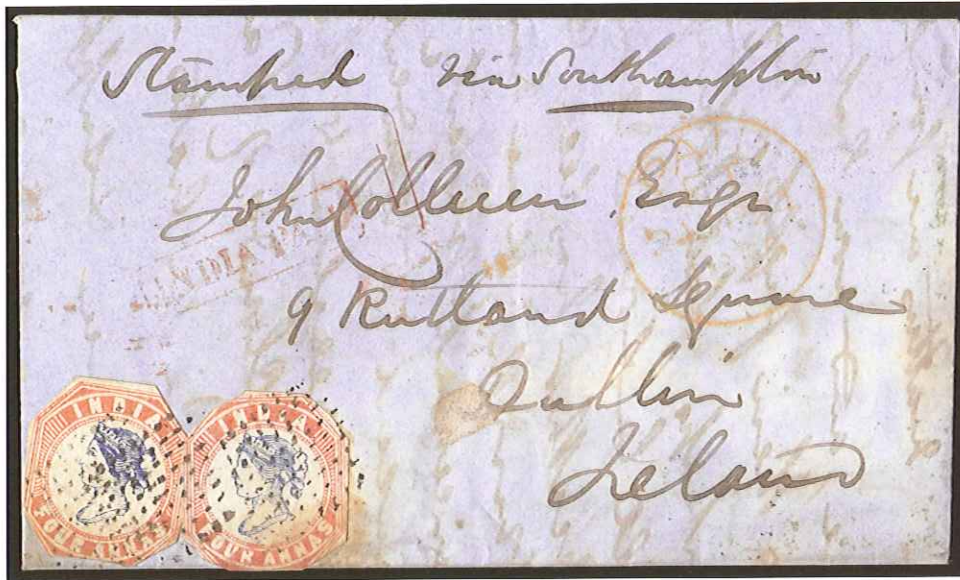 Stamped via Southampton
John Esqr
INDIA
9 Rutland Square
Dublin
Ireland
INDIA
FOUR ANNAS
INDIA
FOUR ANNAS